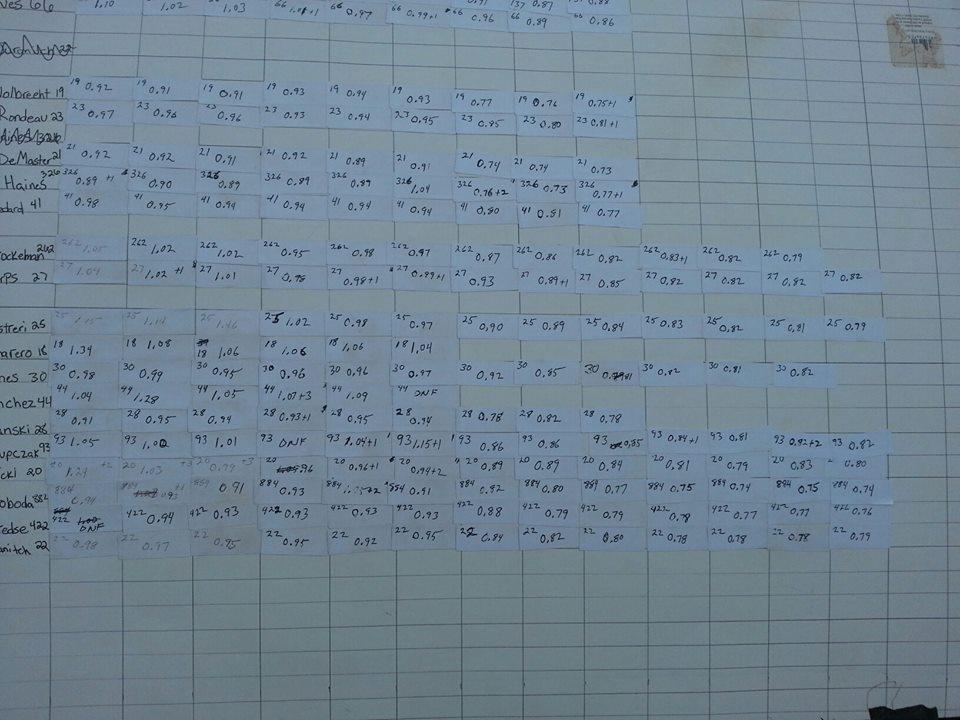 ves 66 1.10 1.02 1.03 66 1.01+1 66 0.97 66 0.99+1 66 0.96 137 0.87 137 0.88
66 0.89 66 0.86
olbrecht 19 19 0.92 19 0.91 19 0.91 19 0.93 19 0.94 19 0.93 19 0.77 19 0.76 19 0.75+1
Rondeau 23 23 0.97 23 0.96 23 0.96 23 0.93 23 0.94 23 0.95 23 0.85 23 0.80 23 0.81+1
DeMaster 21 21 0.92 21 0.92 21 0.91 21 0.92 21 0.89 21 0.91 21 0.74 21 0.74 21 0.73
Haines 326 326 0.89 +1 326 0.90 326 0.89 326 0.89 326 0.89 326 1.04 326 0.76+2 326 0.73 326 0.77+1
edard 41 41 0.98 41 0.95 41 0.94 41 0.94 41 0.94 41 0.94 41 0.80 41 0.81 41 0.77
rockeman 262 262 1.05 262 1.02 262 1.02 262 0.95 262 0.98 262 0.97 262 0.87 262 0.86 262 0.82 262 0.83+1 262 0.82 262 0.79
rps 27 27 1.04 27 1.02 +1 27 1.01 27 0.98 27 0.98+1 27 0.89+1 27 0.93 27 0.89+1 27 0.85 27 0.82 27 0.82 27 0.82 27 0.82
streri 25 25 1.15 25 1.14 25 1.46 25 1.02 25 0.98 25 0.97 25 0.90 25 0.89 25 0.84 25 0.83 25 0.82 25 0.81 25 0.79
arero 18 18 1.34 18 1.08 18 1.06 18 1.06 18 1.06 18 1.04
nes 30 30 0.98 30 0.99 30 0.95 30 0.96 30 0.96 30 0.97 30 0.92 30 0.85 30 30 0.82 30 0.81 30 0.82
nchez 44 44 1.04 44 1.28 44 1.05 44 1.07+3 44 1.09 44 DNF
anski 28 28 0.91 28 0.95 28 0.94 28 0.93+1 28 0.95 28 0.94 28 0.78 28 0.82 28 0.78
upczak 93 93 1.05 93 1.00 93 1.01 93 DNF 93 1.04+1 93 1.15+1 93 0.86 93 0.86 93 0.85 93 0.84+1 93 0.81 93 0.92+2 93 0.82
ickl 20 20 1.24 +2 20 1.03 +3 20 0.99 +3 20 0.96 20 0.96+1 20 0.94+2 20 0.89 20 0.89 20 0.84 20 0.81 20 0.79 20 0.83 20 0.80
oboda 884 884 0.94 884 0.93 +1 884 0.91 884 0.93 884 884 0.91 884 0.92 884 0.80 884 0.77 884 0.75 884 0.74 884 0.75 884 0.74
redse 422 422 DNF 422 0.94 422 0.93 422 0.93 422 0.93 422 0.93 422 0.88 422 0.79 422 0.79 422 0.78 422 0.77 422 0.77 422 0.76
anitch 22 22 0.98 22 0.97 22 0.95 22 0.95 22 0.92 22 0.95 22 0.84 22 0.82 22 0.80 22 0.78 22 0.78 22 0.78 22 0.79